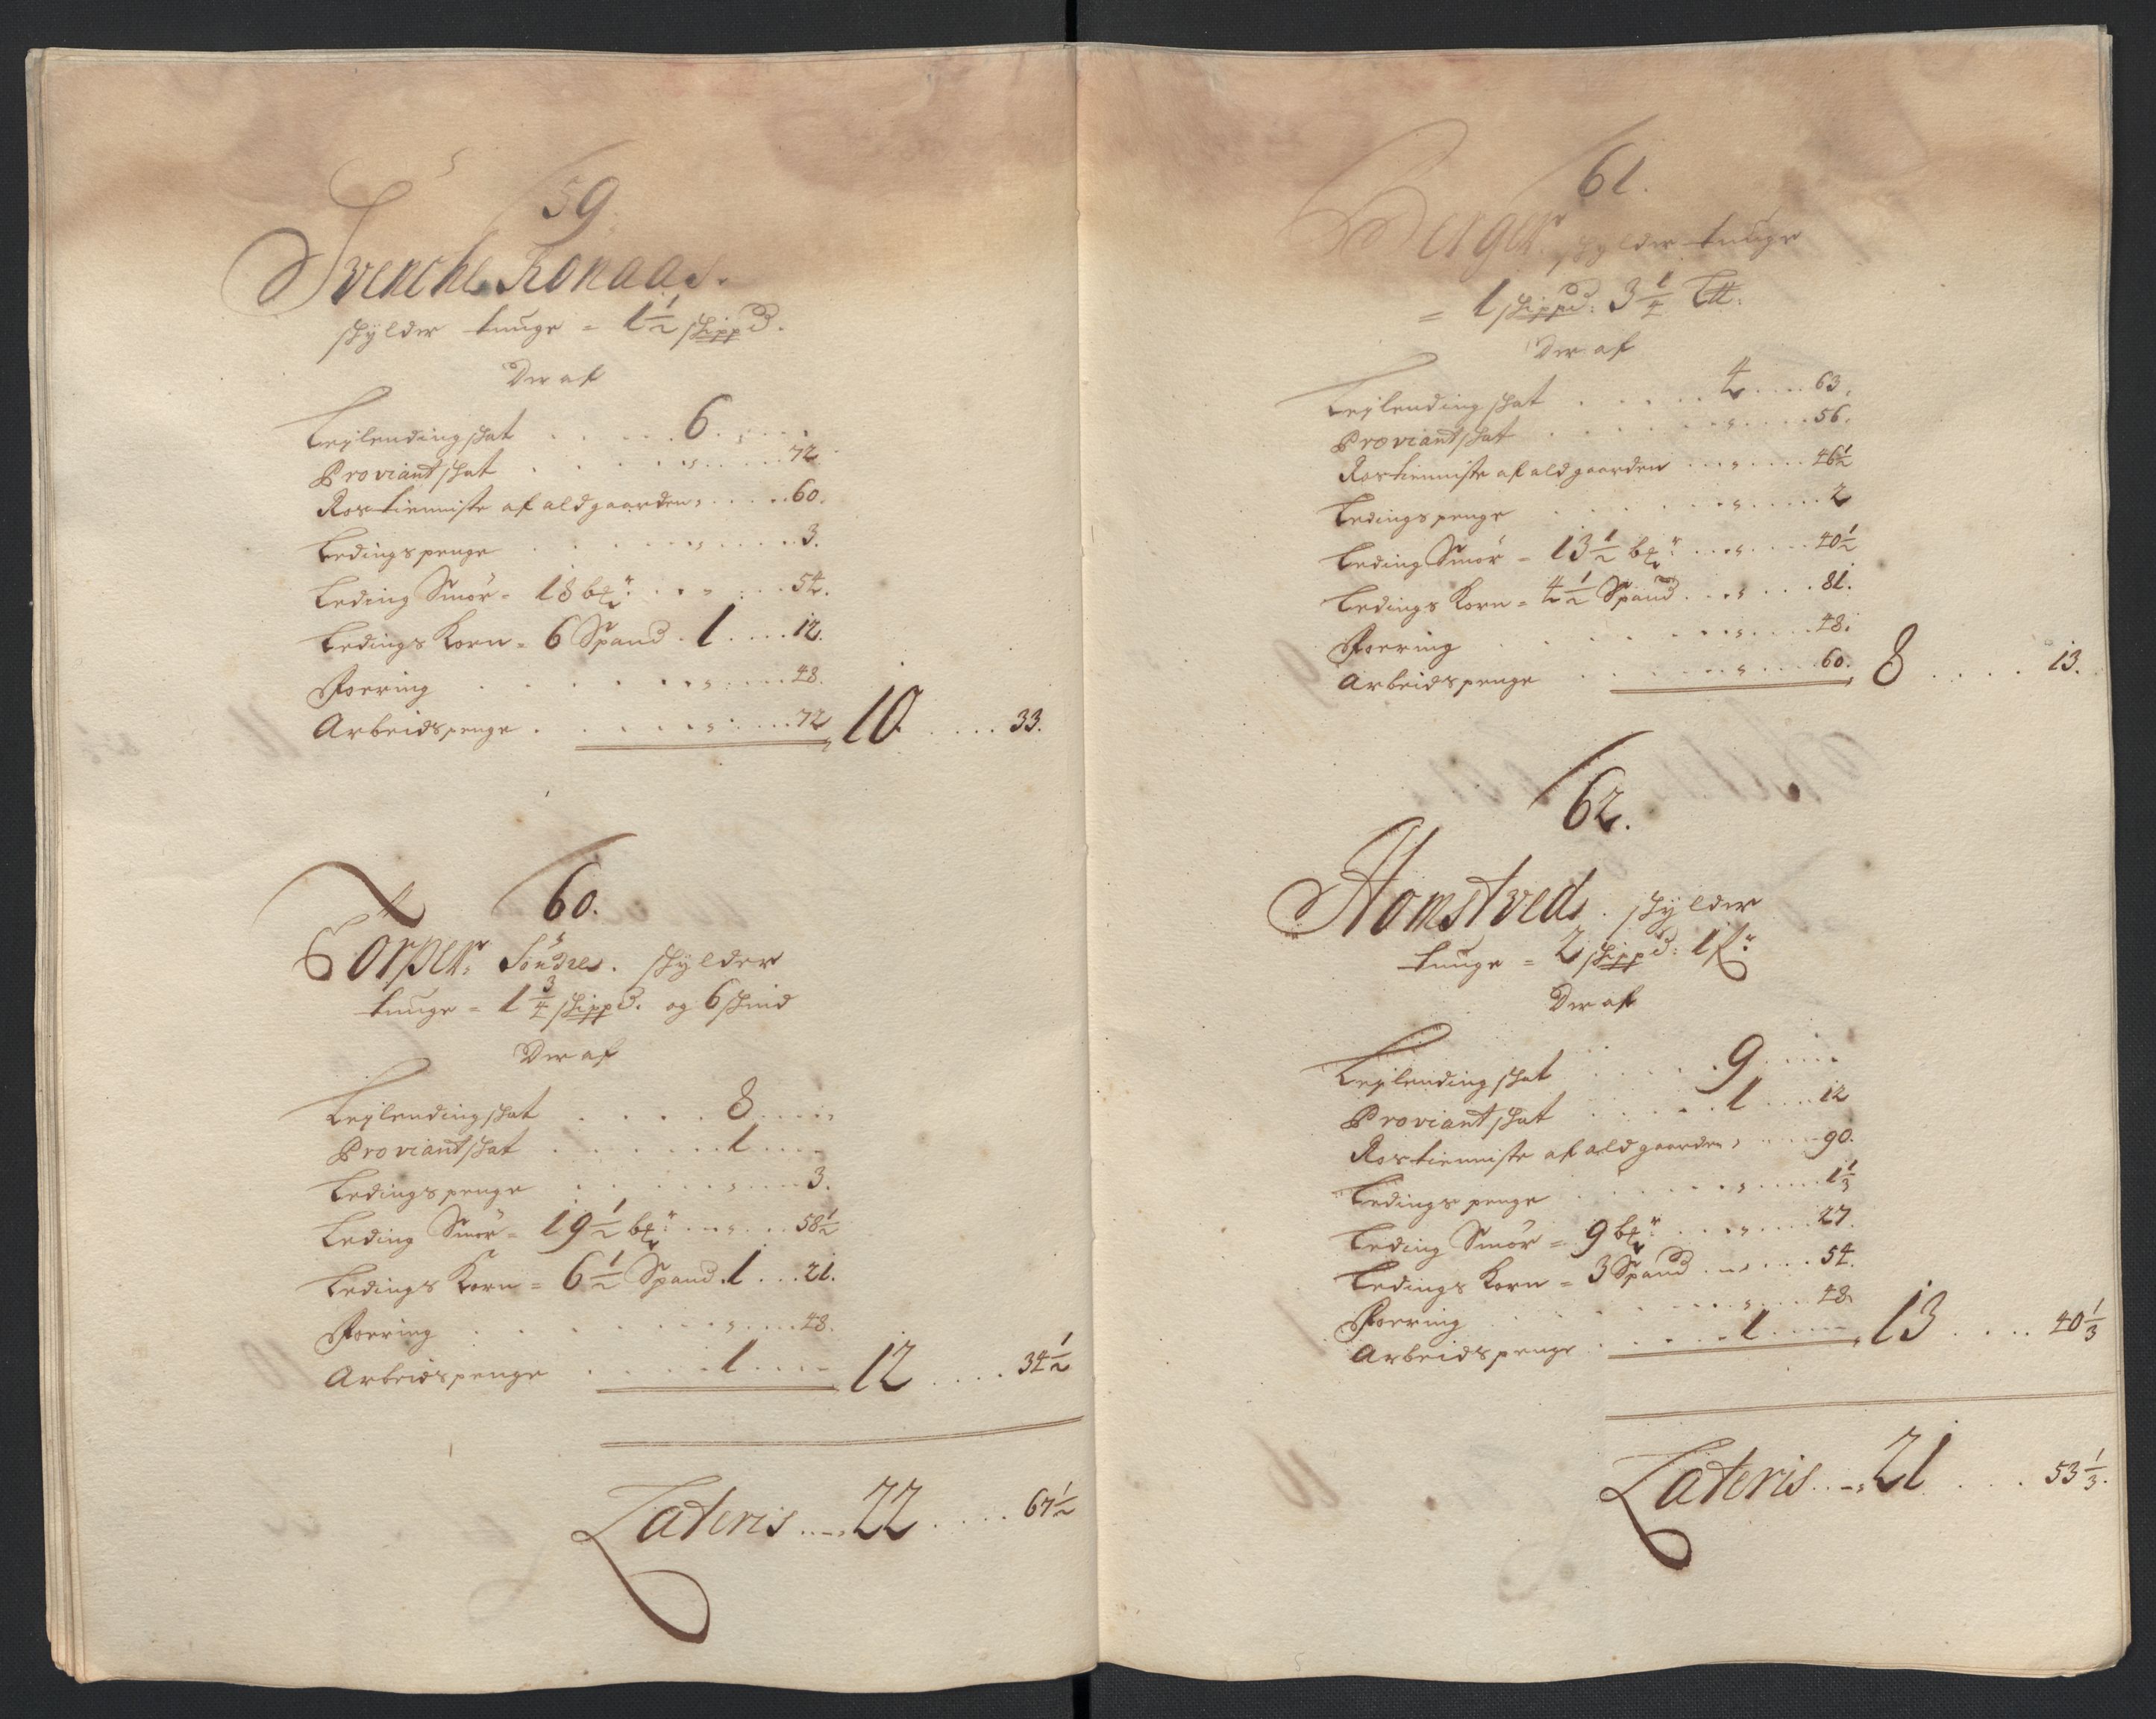 59.
Svenche Konaas.
skylder tunge = 1½ skippd.
Der af
Leylending skat . . . . . 6. „ . . .
Proviant skat . . . . . „ . . . . 72
Rostienniste af ald gaarden, . . . . 60.
Ledings penge . . . . . „ . . . . 3.
Leding Smör = 18 bḿr: . . . „ . . . 54.
Ledings Korn = 6 Spand . 1 . . . . 12.
Foering . . . . . . „ . . . . 48.
Arbeidspenge . . . . . . „ . . . . 72 10. . . . . 33.
60.
Törper, Söndre. skylder
tunge = 1¾ skippd. og 6 skind
Der af
Leylending skat . . . . 8 . . . .
Proviant skat . . . . . . 1 . . . .
Ledings penge . . . . . „ . . . . 3.
Leding Smör = 19½ bḿr: . . . „ . . . 58½
Ledings Korn = 6½ Spand . 1 . . . 21.
Foering . . . . . . . „ . . . . 48.
Arbeidspenge . . . . . 1 . . . . 12 . . . . 34½
Lateris . . . 22 . . . . 67½
61.
Berger, skylder tunge
= 1 skippd: 3¼ L℔.
Der af
Leylending skat . . . . . 4 . . . . 63.
Proviant skat . . . . . . „ . . . . 56.
Rostienniste af ald gaarden . . . „ . . . . 46½
Ledings penge . . . . . . „ . . . . . 2
Leding Smör = 13½ bḿr: . . . „ . . . . 40½
Ledings Korn = 4½ Spand . . . „ . . . 81.
Foering . . . . . . . „ . . . . 48.
Arbeidspenge . . . . . . „ . . . . 60. 8 . . . . 13.
62.
Homstved. skylder
tunge = 2 skippd: 1 fr:
Der af
Leylending skat . . . . . 9 . . . .
Proviant skat . . . . . 1 . . . . 12
Rostienniste af ald gaarden, . . . . 90.
Ledings penge . . . . . . „ . . . . 1⅓
Leding Smör = 9 bḿr: . . . . „ . . . . 27.
Ledings Korn = 3 Spand . . „ . . . . 54.
Foering . . . . . . . „ . . . . 48
Arbeidspenge . . . . . 1 . . . . 13 . . . . 40⅓
Lateris . . . 21 . . . . 53⅓.